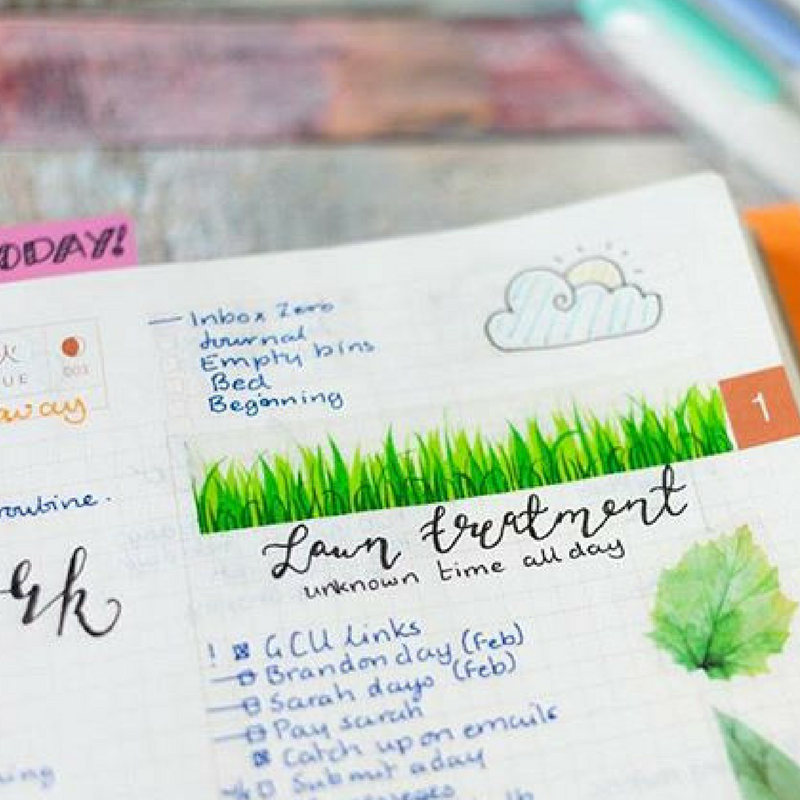 ODAY!
UE
001
away
routine.
Inbox Zero
Journal
Empty bins
Bed
Beginning
1
Lawn treatment
unknown time all day
! GCU links
Brandon day (Feb)
Sarah days (Feb)
Pay sarah
Catch up on emails
Submit a day